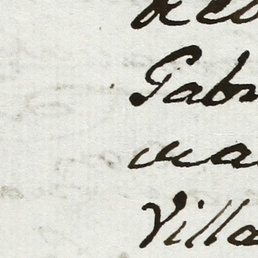 Gabr
ma
Villa